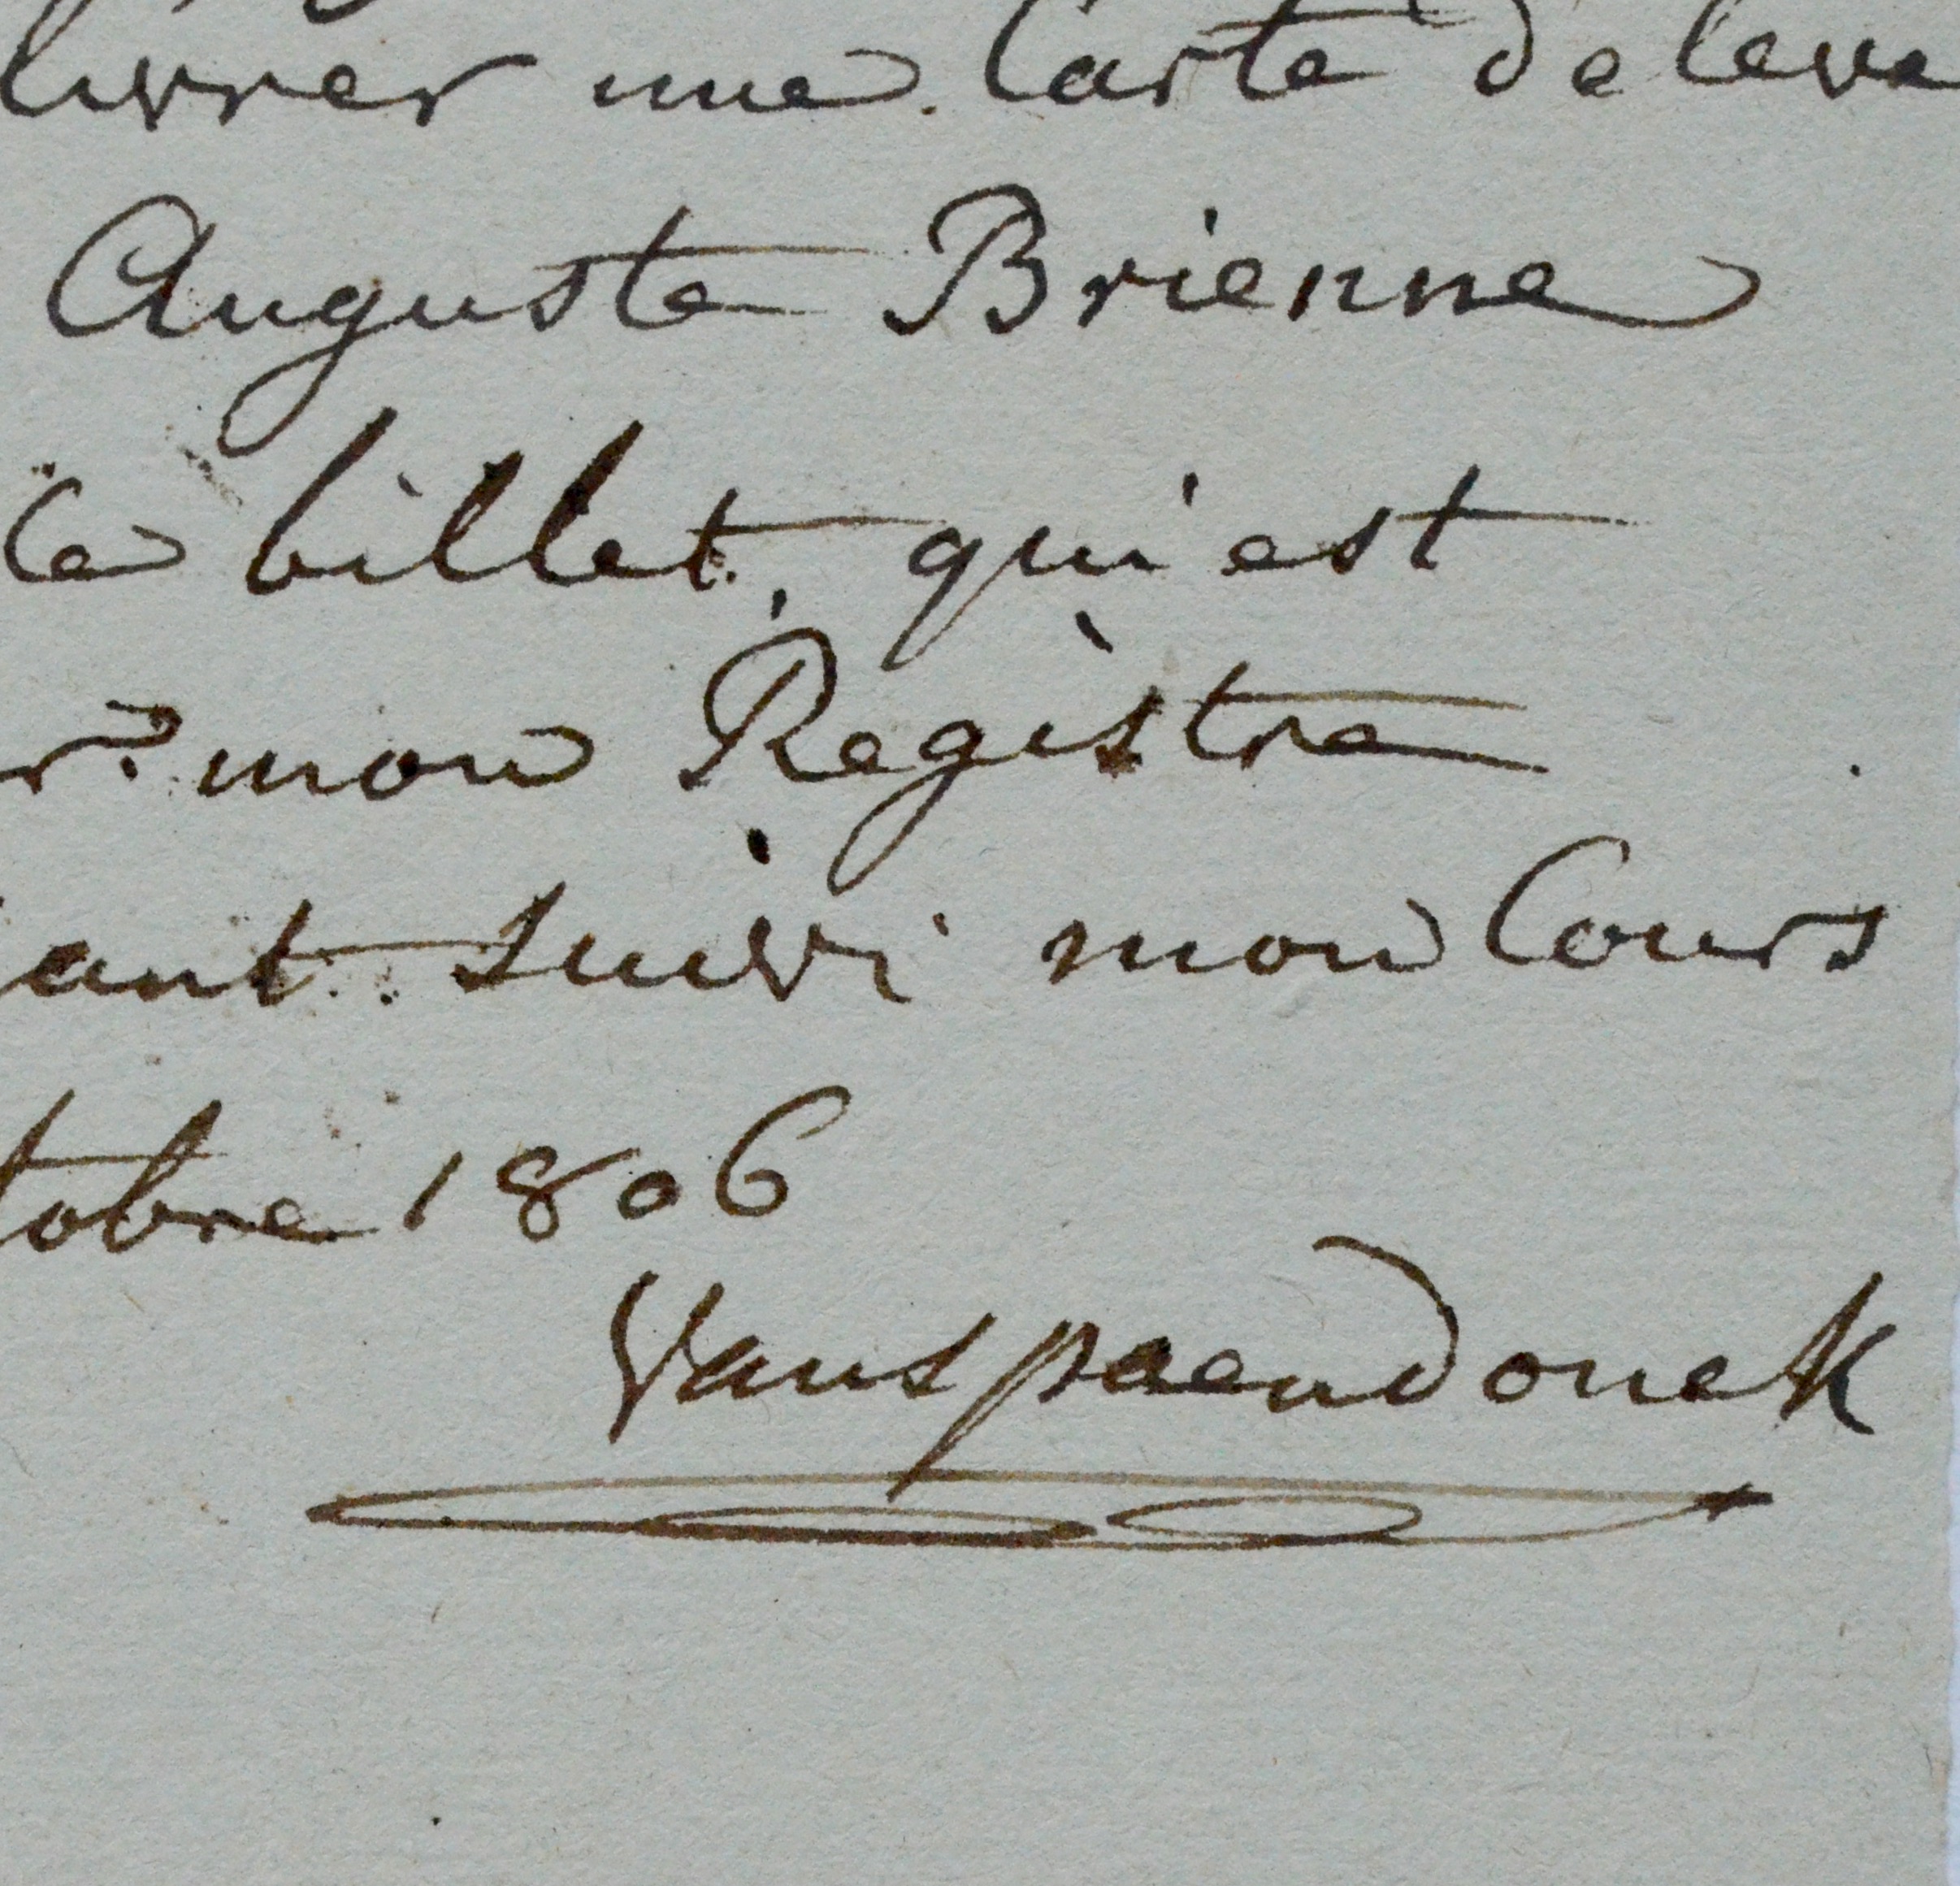 livrer une Carte deleve
Auguste Brienne
le billet, qui est
mon Registre
ant suivi mon Cours
tobre 1806
Vanspaendonck